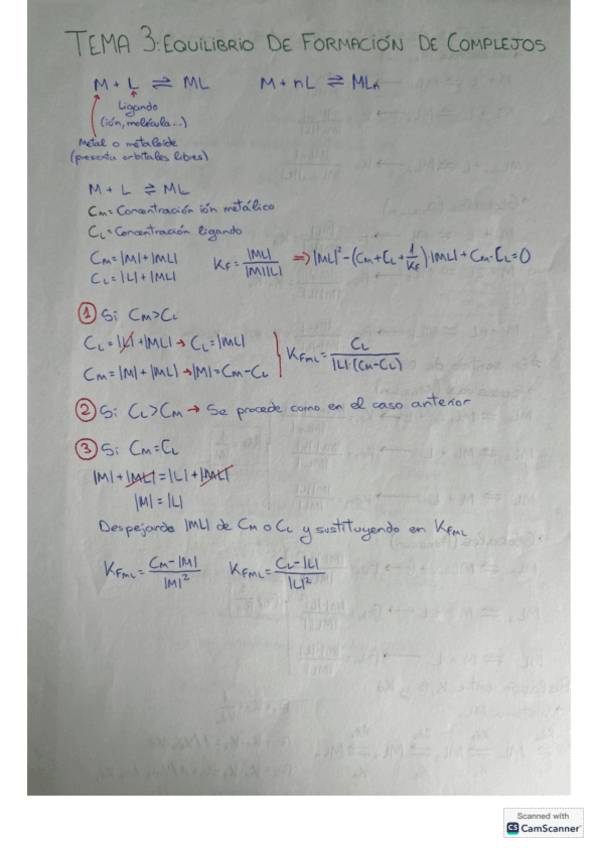 TEMA 3: EQUILIBRIO DE FORMACIÓN DE COMPLEJOS
M + L ⇌ ML   M + nL ⇌ MLn
Ligando
(ión, molécula...)
Metal o metaloide
(presenta orbitales libres)
M + L ⇌ ML
CM = Concentración ión metálico
CL = Concentración ligando
CM = |M| + |ML|
CL = |L| + |ML|
KF = |ML| / |M||L| ⇒ |ML|² - (CM + CL + 1/KF) · |ML| + CM · CL = 0
① Si CM > CL
CL = |L| + |ML| → CL = |ML|
CM = |M| + |ML| → |M| = CM - CL
KFML = CL / |L| · (CM - CL)
② Si CL > CM → Se procede como en el caso anterior
③ Si CM = CL
|M| + |ML| = |L| + |ML|
|M| = |L|
Despejando |ML| de CM o CL y sustituyendo en KFML
KFML = CM - |M| / |M|²   KFML = CL - |L| / |L|²
Scanned with
CS CamScanner